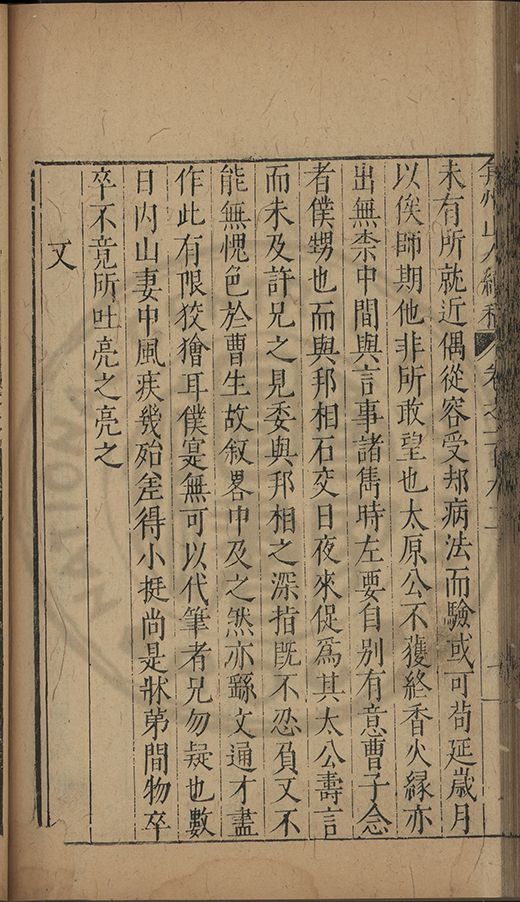 弇州山人續稿 卷之一百九十二
未有所就近偶從容受却病法而驗或可茍延歲月
以俟師期他非所敢望也太原公不獲終香火緣亦
出無柰中間與言事諸雋時左要自別有意曹子念
者僕甥也而與邦相石交日夜來促爲其太公壽言
而未及許兄之見委與邦相之深指旣不忍負又不
能無愧色於曹生故叙畧中及之然亦繇文通才盡
作此有限狡獪耳僕寔無可以代筆者兄勿疑也數
日內山妻中風疾幾殆差得小挺尚是牀第間物卒
卒不竟所吐亮之亮之
又